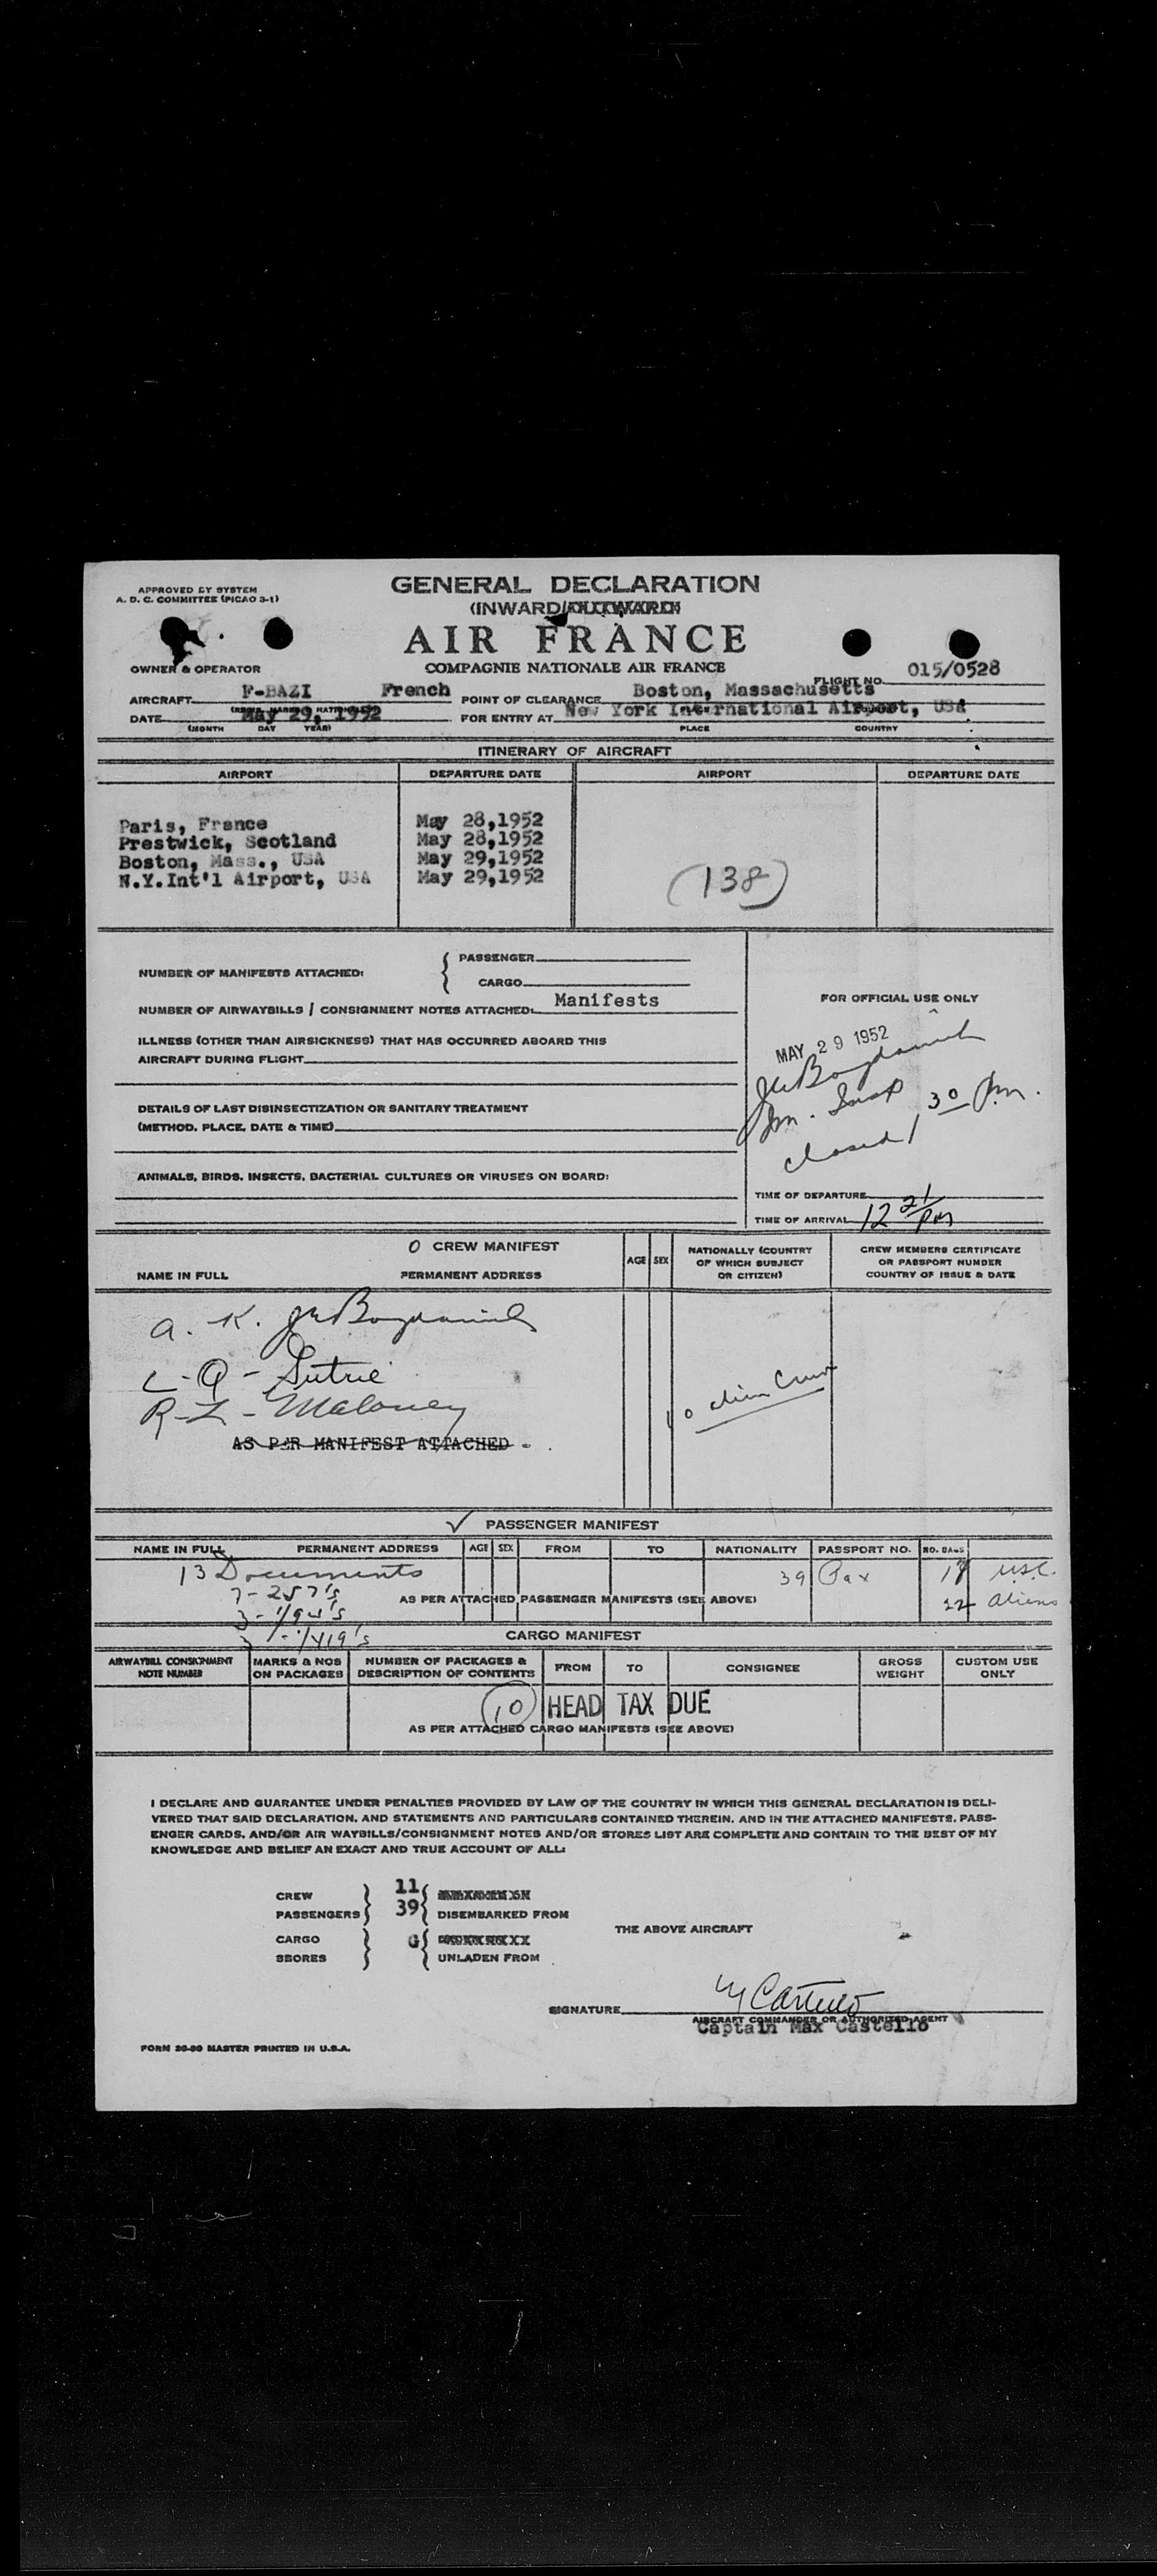 APPROVED BY SYSTEM
A. D. C. COMMITTEE (PICAO 3-1)
GENERAL DECLARATION
(INWARD/OUTWARD)
AIR FRANCE
COMPAGNIE NATIONALE AIR FRANCE
OWNER & OPERATOR
FLIGHT NO. 015/0528
AIRCRAFT F-BAZI French POINT OF CLEARANCE Boston, Massachusetts
DATE May 29, 1952 FOR ENTRY AT New York International Airport, USA
(MONTH DAY YEAR) PLACE COUNTRY
ITINERARY OF AIRCRAFT
AIRPORT DEPARTURE DATE AIRPORT DEPARTURE DATE
Paris, France May 28,1952
Prestwick, Scotland May 28,1952
Boston, Mass., USA May 29,1952
N.Y.Int'l Airport, USA May 29,1952
(138)
NUMBER OF MANIFESTS ATTACHED: { PASSENGER
CARGO
NUMBER OF AIRWAYBILLS / CONSIGNMENT NOTES ATTACHED: Manifests
ILLNESS (OTHER THAN AIRSICKNESS) THAT HAS OCCURRED ABOARD THIS
AIRCRAFT DURING FLIGHT
DETAILS OF LAST DISINSECTIZATION OR SANITARY TREATMENT
(METHOD, PLACE, DATE & TIME)
ANIMALS, BIRDS, INSECTS, BACTERIAL CULTURES OR VIRUSES ON BOARD:
FOR OFFICIAL USE ONLY
MAY 29 1952
Im. Insp
closed 1 30 pm.
TIME OF DEPARTURE
TIME OF ARRIVAL 12 21 pm
0 CREW MANIFEST
NAME IN FULL PERMANENT ADDRESS AGE SEX NATIONALLY (COUNTRY OF WHICH SUBJECT OR CITIZEN) CREW MEMBERS CERTIFICATE OR PASSPORT NUMBER COUNTRY OF ISSUE & DATE
A. K.
L-Q-
R-L- Maloney
10 alien Crew
AS PER MANIFEST ATTACHED.
✓ PASSENGER MANIFEST
NAME IN FULL PERMANENT ADDRESS AGE SEX FROM TO NATIONALITY PASSPORT NO. NO. BAGS
13 Documents 39 Pax 17 USC.
7-257's
AS PER ATTACHED PASSENGER MANIFESTS (SEE ABOVE) 22 aliens
CARGO MANIFEST
AIRWAYBILL CONSIGNMENT NOTE NUMBER MARKS & NOS ON PACKAGES NUMBER OF PACKAGES & DESCRIPTION OF CONTENTS FROM TO CONSIGNEE GROSS WEIGHT CUSTOM USE ONLY
10 HEAD TAX DUE
AS PER ATTACHED CARGO MANIFESTS (SEE ABOVE)
I DECLARE AND GUARANTEE UNDER PENALTIES PROVIDED BY LAW OF THE COUNTRY IN WHICH THIS GENERAL DECLARATION IS DELI-
VERED THAT SAID DECLARATION, AND STATEMENTS AND PARTICULARS CONTAINED THEREIN, AND IN THE ATTACHED MANIFESTS, PASS-
ENGER CARDS, AND/OR AIR WAYBILLS/CONSIGNMENT NOTES AND/OR STORES LIST ARE COMPLETE AND CONTAIN TO THE BEST OF MY
KNOWLEDGE AND BELIEF AN EXACT AND TRUE ACCOUNT OF ALL:
CREW 11
PASSENGERS 39 DISEMBARKED FROM
THE ABOVE AIRCRAFT
CARGO G
SBORES UNLADEN FROM
SIGNATURE M Castello
AIRCRAFT COMMANDER OR AUTHORIZED AGENT
Captain Max Castello
FORM 20-90 MASTER PRINTED IN U.S.A.